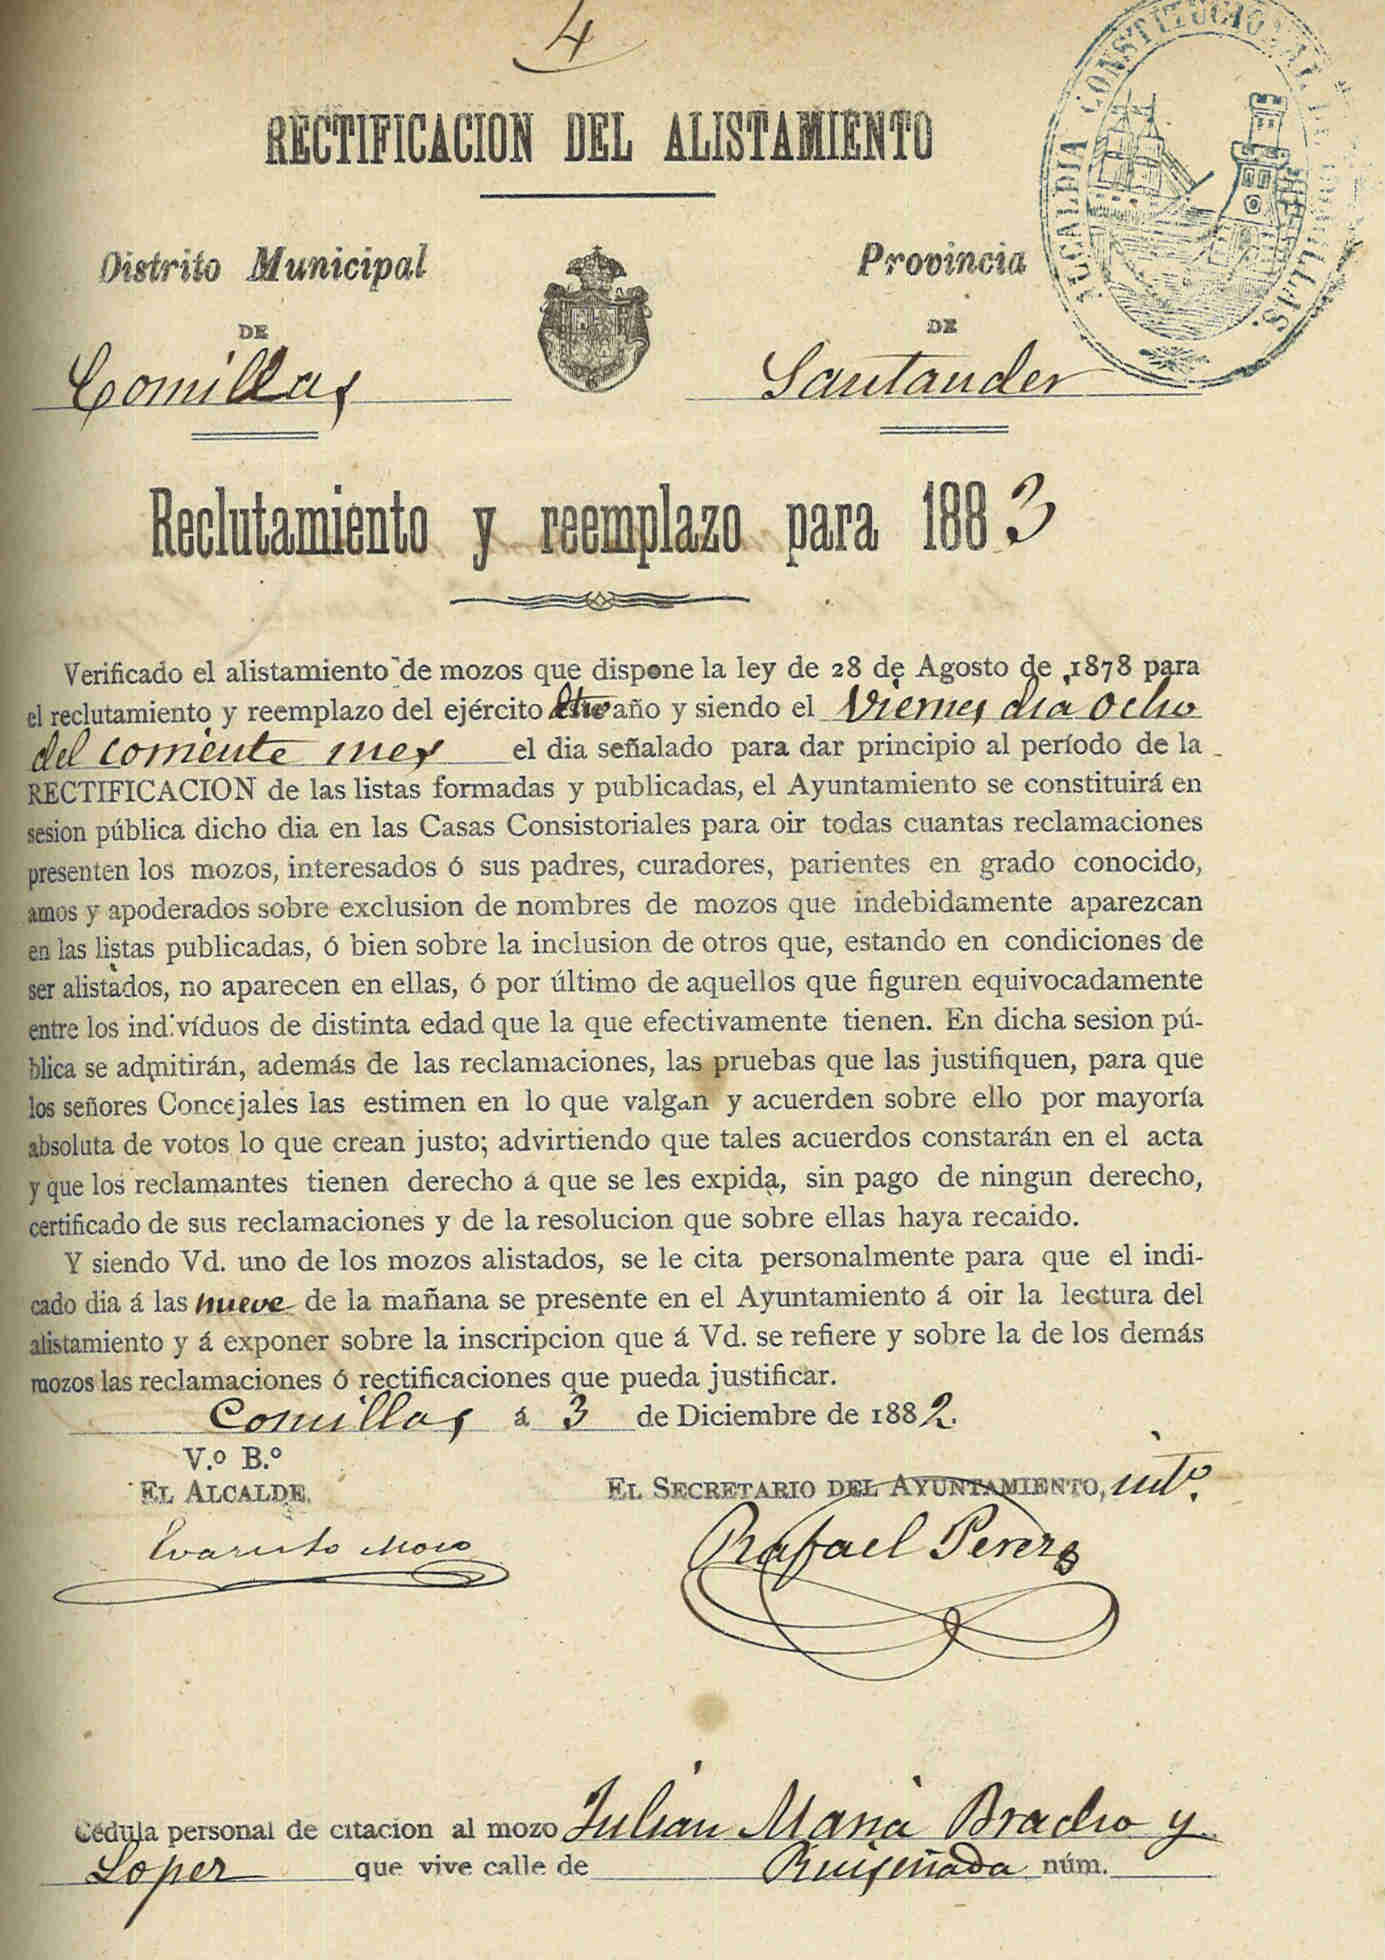 4
ALCALDIA CONSTITUCIONAL DE COMILLAS.
RECTIFICACION DEL ALISTAMIENTO
Distrito Municipal
DE
Comillas
Provincia
DE
Santander
Reclutamiento y reemplazo para 1883
Verificado el alistamiento de mozos que dispone la ley de 28 de Agosto de 1878 para
el reclutamiento y reemplazo del ejército año y siendo el Viernes dia ocho
del corriente mes el dia señalado para dar principio al período de la
RECTIFICACION de las listas formadas y publicadas, el Ayuntamiento se constituirá en
sesion pública dicho dia en las Casas Consistoriales para oir todas cuantas reclamaciones
presenten los mozos, interesados ó sus padres, curadores, parientes en grado conocido,
amos y apoderados sobre exclusion de nombres de mozos que indebidamente aparezcan
en las listas publicadas, ó bien sobre la inclusion de otros que, estando en condiciones de
ser alistados, no aparecen en ellas, ó por último de aquellos que figuren equivocadamente
entre los indivíduos de distinta edad que la que efectivamente tienen. En dicha sesion pú-
blica se admitirán, además de las reclamaciones, las pruebas que las justifiquen, para que
los señores Concejales las estimen en lo que valgan y acuerden sobre ello por mayoría
absoluta de votos lo que crean justo; advirtiendo que tales acuerdos constarán en el acta
y que los reclamantes tienen derecho á que se les expida, sin pago de ningun derecho,
certificado de sus reclamaciones y de la resolucion que sobre ellas haya recaido.
Y siendo Vd. uno de los mozos alistados, se le cita personalmente para que el indi-
cado dia á las nueve de la mañana se presente en el Ayuntamiento á oir la lectura del
alistamiento y á exponer sobre la inscripcion que á Vd. se refiere y sobre la de los demás
mozos las reclamaciones ó rectificaciones que pueda justificar.
Comillas á 3 de Diciembre de 1882.
V.º B.º
EL ALCALDE,
EL SECRETARIO DEL AYUNTAMIENTO, intº.
Evaristo Moro
Rafael Perez
Cédula personal de citacion al mozo Julian Maria Bracho y
Lopez que vive calle de Ruiseñada núm.